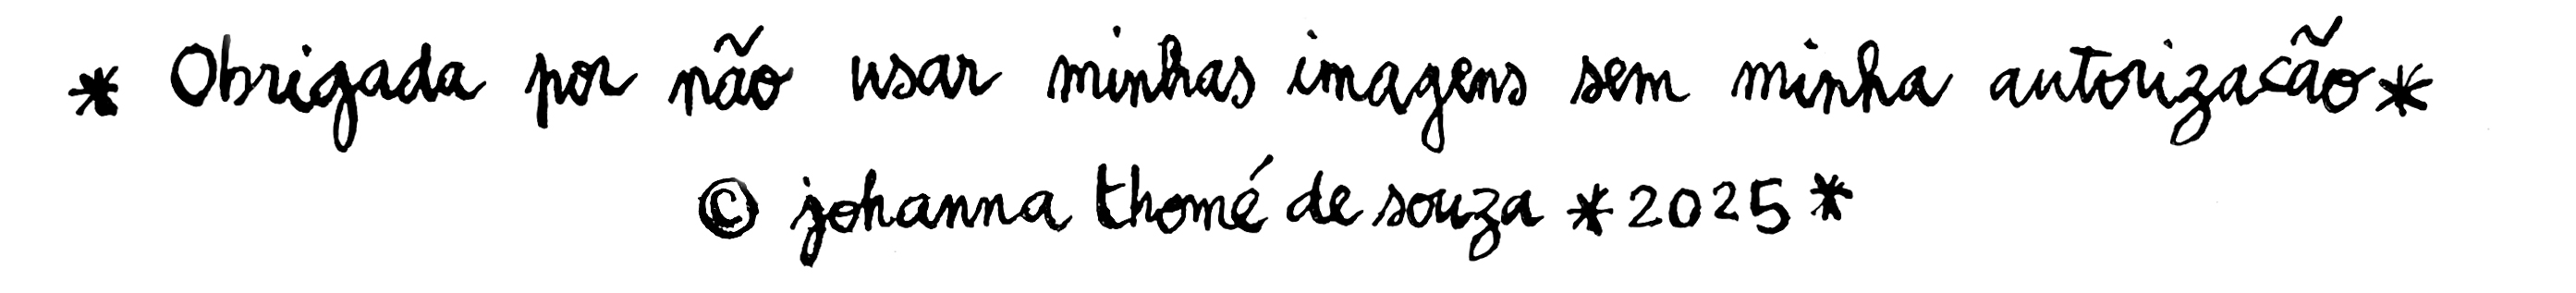 * Obrigada por não usar minhas imagens sem minha autorizacão *
© johanna thomé de souza * 2025 *